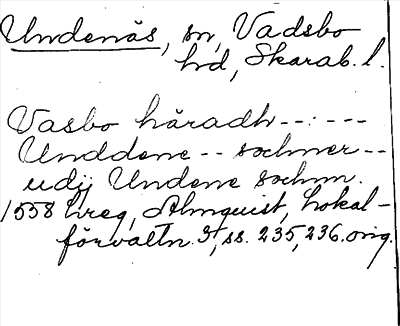 Undenäs, sn, Vadsbo
hd, Skarab. l.
Vasbo häradh - - : - - -
Unddene - - sochner - -
udij Undene sochnn.
1558 hreg, Almquist, Lokal-
förvaltn. 3, ss. 235, 236. orig.